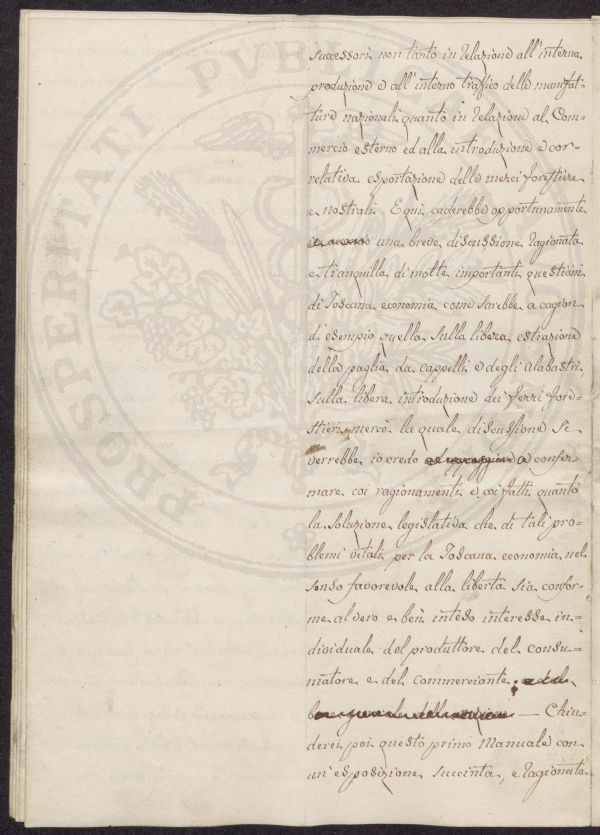 PROSPERITATI PVBLICAE
successori non tanto in relazione all'interna
produzione e all'interno traffico delle manifat=
ture nazionali quanto in relazione al Com=
mercio esterno ed alla introduzione e cor=
relativa esportazione delle merci forestiere
e nostrali. E qui caderebbe opportunamente
una breve discussione ragionata
e tranquilla di molte importanti questioni
di Toscana economia come sarebbe a cagion
di esempio quella sulla libera estrazione
della paglia da cappelli e degli alabastri,
sulla libera introduzione dei ferri fore=
stieri mercè la quale discussione si
verrebbe io credo a confer=
mare coi ragionamenti e coi fatti quanto
la soluzione legislativa che di tali pro=
blemi vitali per la Toscana economia nel
senso favorevole alla libertà sia confor=
me al vero e ben inteso interesse in=
dividuale del produttore del consu=
matore e del Commerciante.
— Chiu=
derei poi questo primo Manuale con
un'esposizione succinta, e ragionata